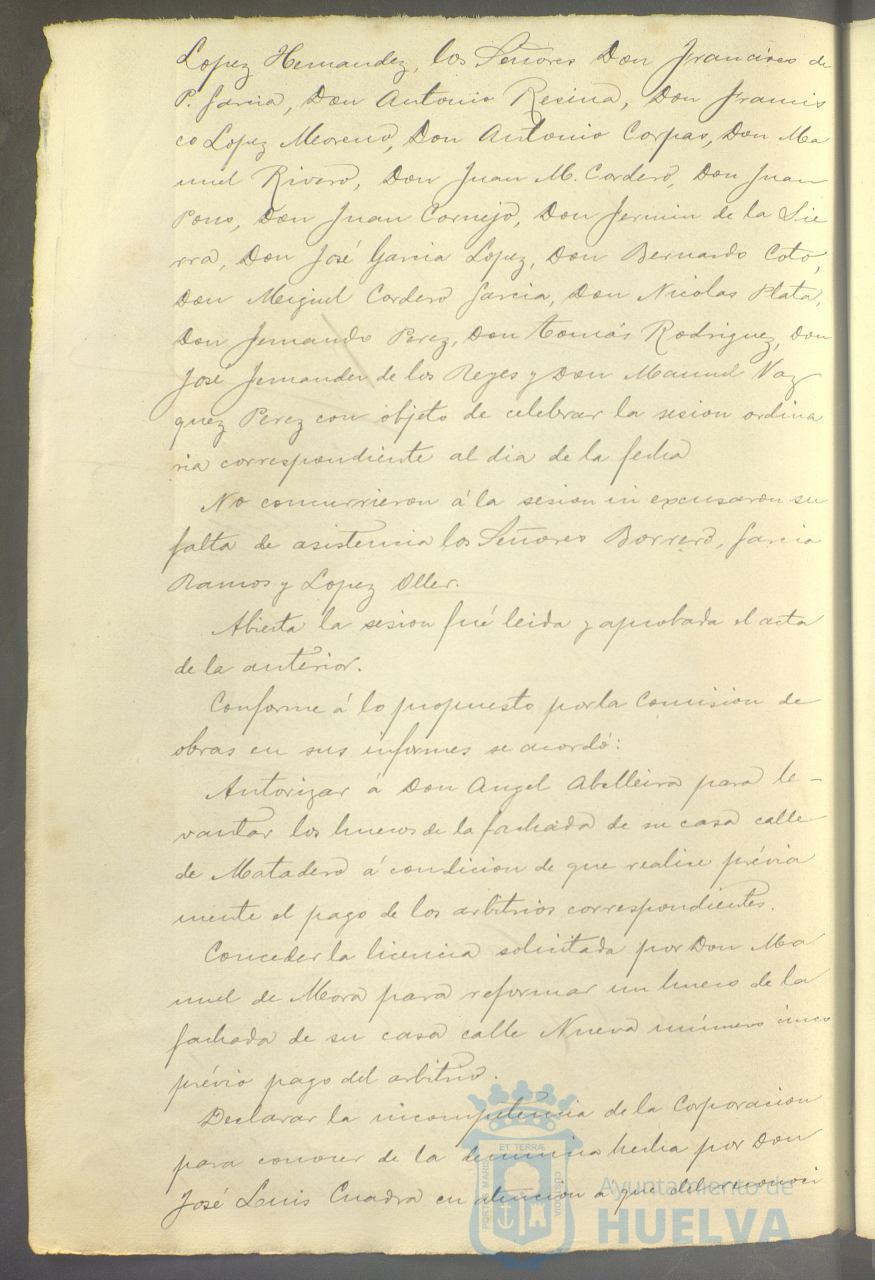 Lopez Hernandez, los Señores Don Francisco de
P. Garcia, Don Antonio Resina, Don Francis
co Lopez Moreno, Don Antonio Corpas, Don Ma
nuel Rivero, Don Juan M. Cordero, Don Juan
Pons, Don Juan Cornejo, Don Fermin de la Sie
rra, Don José Garcia Lopez, Don Bernardo Coto,
Don Miguel Cordero Garcia, Don Nicolas Plata,
Don Fernando Perez, Don Tomás Rodriguez, Don
José Fernandez de los Reyes y Don Manuel Vaz
quez Perez con objeto de celebrar la sesion ordina
ria correspondiente al dia de la fecha
No concurrieron á la sesion ni excusaron su
falta de asistencia los Señores Borrero, Garcia
Ramos y Lopez Oller.
Abierta la sesion fué leida y aprobada el acta
de la anterior.
Conforme á lo propuesto por la Comision de
obras en sus informes se acordó:
Autorizar á Don Angel Abelleira para le-
vantar los huecos de la fachada de su casa calle
de Matadero á condicion de que realice prévia
mente el pago de los arbitrios correspondientes.
Conceder la licencia solicitada por Don Ma
nuel de Mora para reformar un hueco de la
fachada de su casa calle Nueva número cinco
prévio pago del arbitrio.
Declarar la incompetencia de la Corporacion
para conocer de la denuncia hecha por Don
José Luis Cuadra en atencion á que del reconoci
PORTUS MARIS ET TERRAE CUSTODIA
Ayuntamiento de
HUELVA